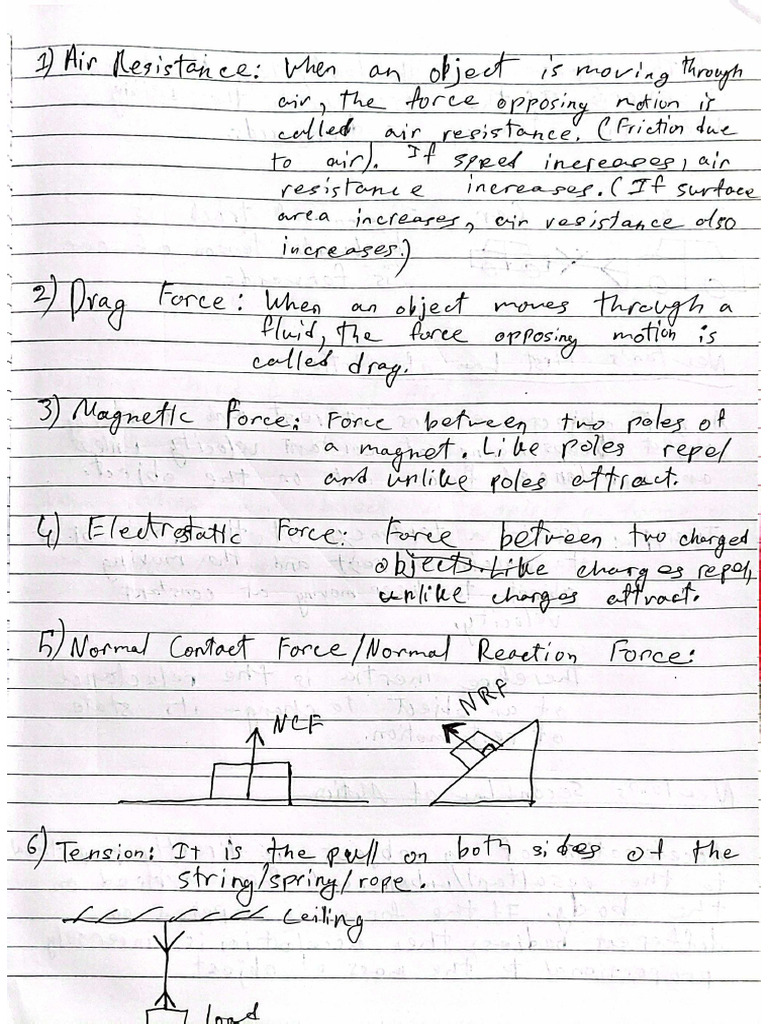 1) Air Resistance: When an object is moving through
air, the force opposing motion is
called air resistance. (Friction due
to air). If speed increases, air
resistance increases. (If surface
area increases, air resistance also
increases.)
2) Drag Force: When an object moves through a
fluid, the force opposing motion is
called drag.
3) Magnetic Force: Force between two poles of
a magnet. Like poles repel
and unlike poles attract.
4) Electrostatic Force: Force between two charged
objects. Like charges repel,
unlike charges attract.
5) Normal Contact Force/Normal Reaction Force:
NCF
NRF
6) Tension: It is the pull on both sides of the
string/spring/rope.
Ceiling
load